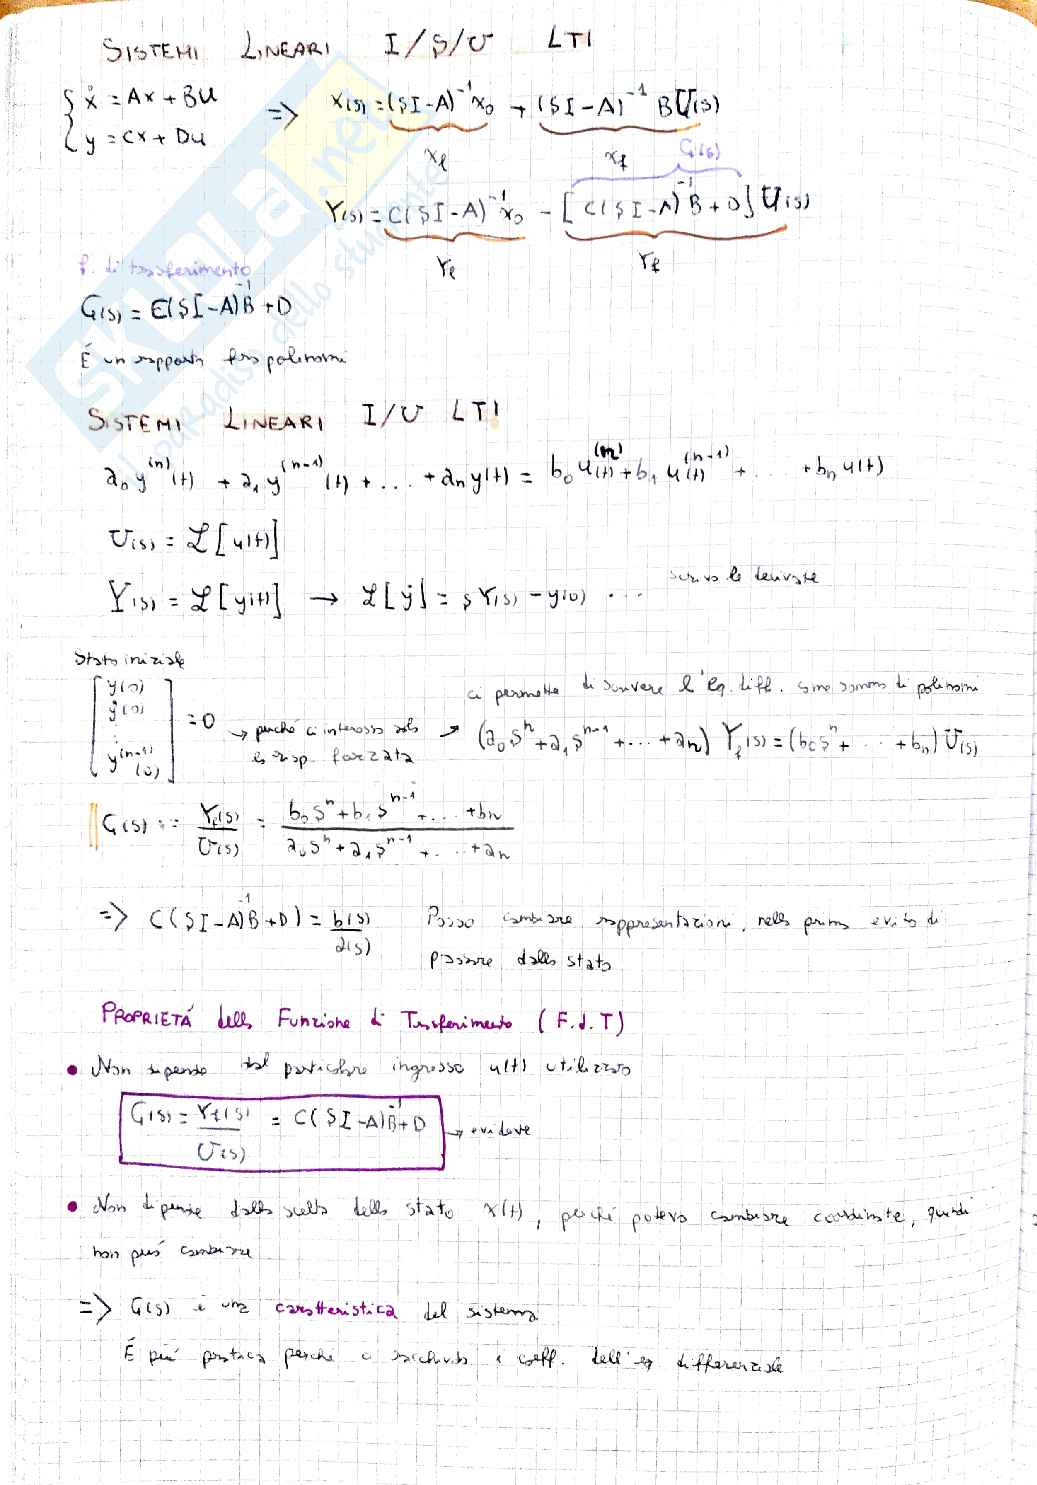 SISTEMI LINEARI I/S/U LTI
{ ẋ = Ax + Bu
{ y = Cx + Du
=> X(s) = (SI-A)⁻¹ x₀ + (SI-A)⁻¹ B U(s)
xₗ x_f G(s)
Y(s) = C(SI-A)⁻¹ x₀ - [C(SI-A)⁻¹B + D] U(s)
Yₗ Y_f
f. di trasferimento
G(s) = C(SI-A)⁻¹B + D
É un rapporto fra polinomi
SISTEMI LINEARI I/U LTI
a₀ y⁽ⁿ⁾(t) + a₁ y⁽ⁿ⁻¹⁾(t) + ... + aₙ y(t) = b₀ u⁽ⁿ⁾(t) + b₁ u⁽ⁿ⁻¹⁾(t) + ... + bₙ u(t)
U(s) = ℒ[u(t)]
Y(s) = ℒ[y(t)] → ℒ[ẏ] = sY(s) - y(0) ... scrivo le derivate
Stato iniziale
[y(0) ẏ(0) ⋮ y⁽ⁿ⁻¹⁾(0)] = 0 → perché ci interessa solo la risp. forzata
→ ci permette di scrivere l'eq. diff. come somma di polinomi
(a₀sⁿ + a₁sⁿ⁻¹ + ... + aₙ) Y_f(s) = (b₀sⁿ + ... + bₙ) U(s)
G(s) := Y_f(s)/U(s) = (b₀sⁿ + b₁sⁿ⁻¹ + ... + bₙ)/(a₀sⁿ + a₁sⁿ⁻¹ + ... + aₙ)
=> C(SI-A)⁻¹B + D) = b(s)/a(s) Posso cambiare rappresentazioni, nella prima evito di
passare dallo stato
PROPRIETÁ della Funzione di Trasferimento (F.d.T)
• Non dipende dal particolare ingresso u(t) utilizzato
G(s) = Y_f(s)/U(s) = C(SI-A)⁻¹B + D → evidente
• Non dipende dalla scelta dello stato x(t), perché potevo cambiare coordinate, quindi
non puó cambiare
=> G(s) è una caratteristica del sistema
É piú pratica perché ci racchiude i coeff. dell'eq differenziale
SKUOLA.net
il paradiso dello studente